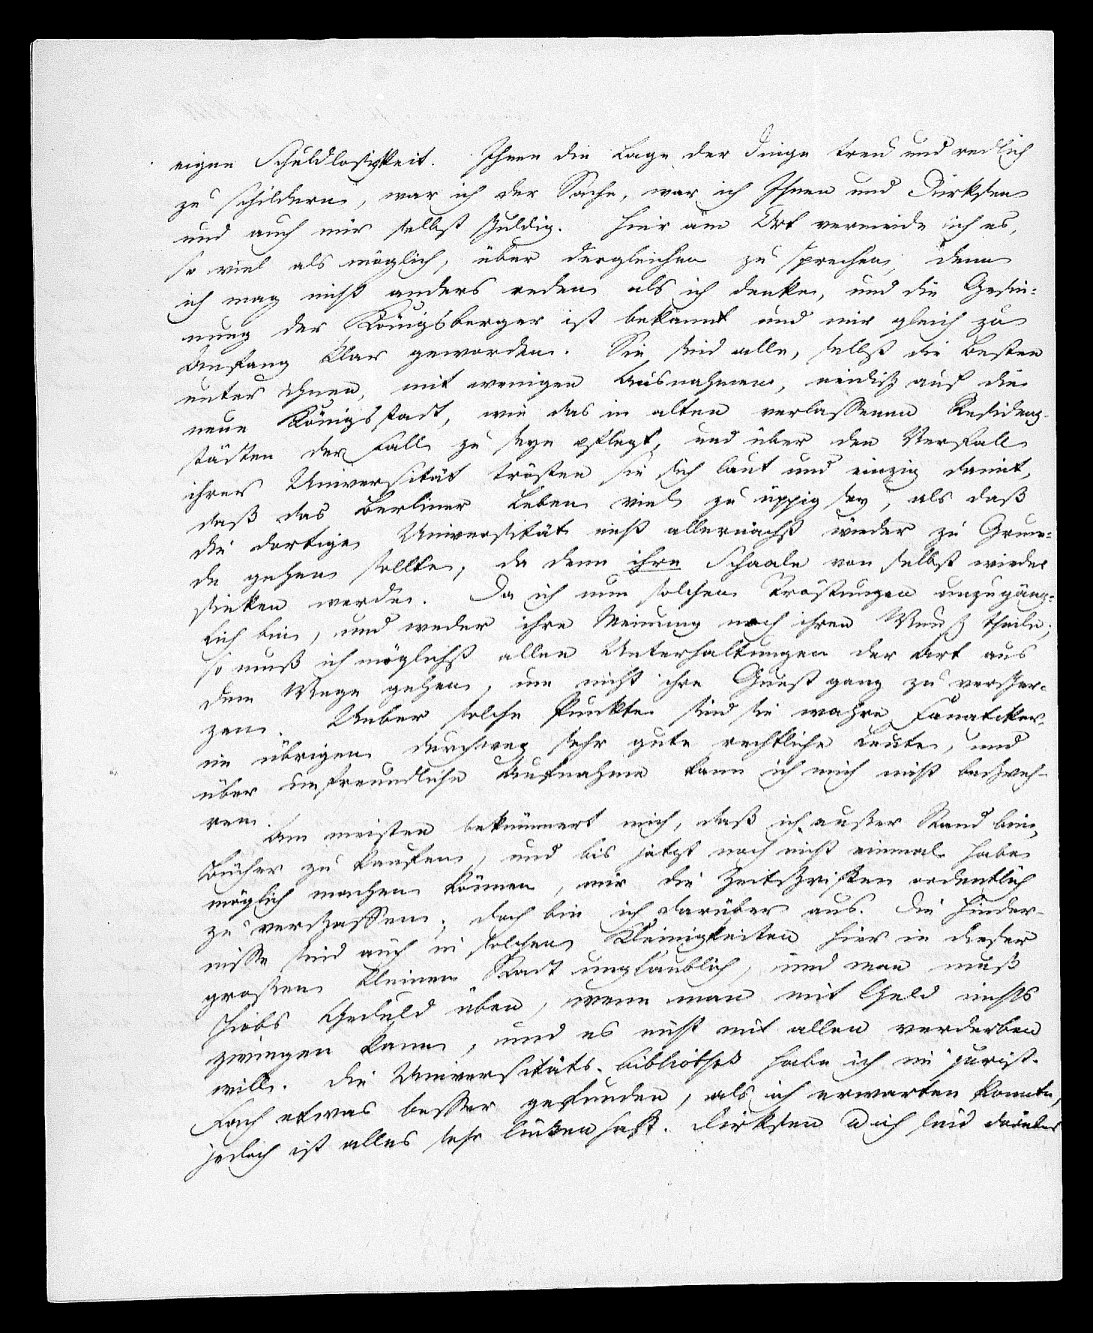 eigne Schuldlosigkeit. Ihnen die Lage der Dinge treu und redlich
zu schildern, war ich der Sache, war ich Ihnen und Dirksen
und auch mir selbst schuldig. Hier am Ort vermeide ich es,
so viel als möglich, über dergleichen zu sprechen, denn
ich mag nicht anders reden als ich denke, und die Gesin-
nung der Königsberger ist bekannt und mir gleich zu
Anfang klar geworden. Sie sind alle, selbst die Besten
unter ihnen, mit wenigen Ausnahmen, neidisch auf die
neue Königsstadt, wie das in alten verlassenen Residenz-
städten der Fall zu seyn pflegt, und über den Verfall
ihrer Universität trösten sie sich laut und einzig damit,
daß das Berliner Leben viel zu üppig sey, als daß
die dortige Universität nicht allernächst wieder zu Grun-
de gehen sollte, da denn ihre Schaale von selbst wieder
sinken werde. Da ich nun solchen Tröstungen unzugäng-
lich bin, und weder ihre Meinung noch ihren Wunsch theile,
so muß ich möglichst allen Unterhaltungen der Art aus
dem Wege gehen, um nicht ihre Gunst ganz zu verscher-
zen. Ueber solche Punkte sind sie wahre Fanatiker,
im übrigen durchweg sehr gute rechtliche Leute, und
über unfreundliche Aufnahme kann ich mich nicht beschweh-
ren.
Am meisten bekümmert mich, daß ich außer Stand bin,
Bücher zu kaufen, und bis jetzt noch nicht einmal habe
möglich machen können, mir die Zeitschriften ordentlich
zu verschaffen, doch bin ich darüber aus. Die Hinder-
nisse sind auch in solchen Kleinigkeiten hier in dieser
großen kleinen Stadt unglaublich, und man muß
Hiobs Geduld üben, wenn man mit Geld nichts
zwingen kann, und es nicht mit allen verderben
will. Die Universitäts-bibliothek habe ich im jurist.
Fach etwas besser gefunden, als ich erwarten konnte,
jedoch ist alles sehr lückenhaft. Dirksen u ich sind